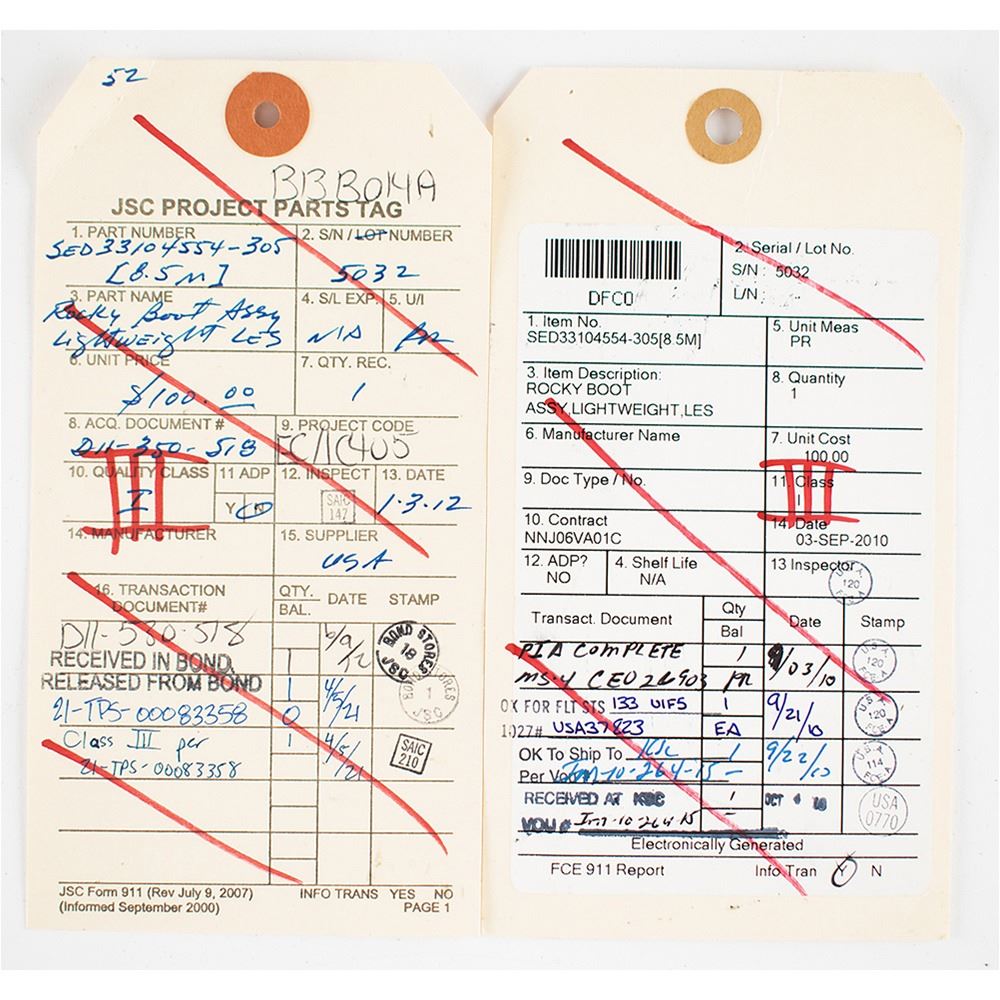 52
BBB014A
JSC PROJECT PARTS TAG
1. PART NUMBER
SED33104554-305
[8.5M]
2. S/N / LOT NUMBER
5032
3. PART NAME
Rocky Boot Assy
Lightweight LES
4. S/L EXP.
N/A
5. U/I
PR
6. UNIT PRICE
$100.00
7. QTY. REC.
1
8. ACQ. DOCUMENT #
D11-350-518
9. PROJECT CODE
10. QUALITY CLASS
I
III
11 ADP
Y N
12. INSPECT
SAIC
147
13. DATE
1-3-12
14. MANUFACTURER
15. SUPPLIER
USA
16. TRANSACTION
DOCUMENT#
QTY.
BAL.
DATE
STAMP
D11-530-518
1
BOND STORES
18
JSC
RECEIVED IN BOND,
RELEASED FROM BOND
21-TPS-00083358
1
0
4/5/21
BOND STORES
1
JSC
Class III per
21-TPS-00083358
1
4/5/21
SAIC
210
JSC Form 911 (Rev July 9, 2007)
(Informed September 2000)
INFO TRANS YES NO
PAGE 1
DFC0
2. Serial / Lot No.
S/N : 5032
L/N :
1. Item No.
SED33104554-305[8.5M]
5. Unit Meas
PR
3. Item Description:
ROCKY BOOT
ASSY,LIGHTWEIGHT,LES
8. Quantity
1
6. Manufacturer Name
7. Unit Cost
100.00
9. Doc Type / No.
11. Class
I
III
10. Contract
NNJ06VA01C
14. Date
03-SEP-2010
12. ADP?
NO
4. Shelf Life
N/A
13 Inspector
USA
120
FCE-A
Transact. Document
Qty
Bal
Date
Stamp
PIA COMPLETE
MS-4 CEU26903
1
PR
9/03/10
USA
120
FCE-A
OK FOR FLT STS 133 ULF5
1027# USA37823
1
EA
9/21/10
USA
120
FCE-A
OK To Ship To KSC
Per Vou# Im-10-264-15
1
-
9/22/10
USA
114
FCE-A
RECEIVED AT KSC
VOU # Im-10-264-15
1
-
OCT 4 10
USA
0770
Electronically Generated
FCE 911 Report
Info Tran Y N